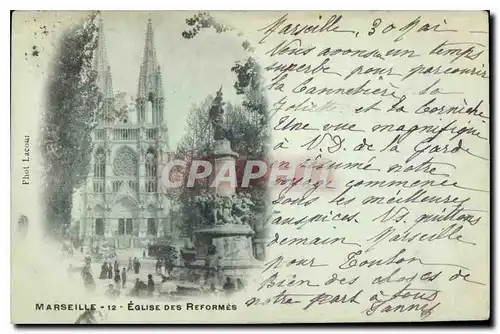 Marseille, 30 Mai
Nous avons un temps
superbe pour parcourir
la Cannebière, la
Joliette et la Corniche
Une vue magnifique
à N.D. de la Garde
en résumé notre
voyage commence
sous les meilleurs
auspices. Ns. quittons
demain Marseille
pour Toulon
Bien des choses de
notre part à tous
Phot Lacour
CPArama
MARSEILLE - 12 - ÉGLISE DES REFORMÉS